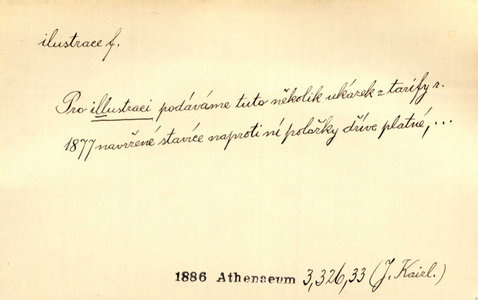 ilustrace f.
Pro illustraci podáváme tuto několik ukázek z tarify r.
1877 navržené stavíce naproti ní položky dříve platné, ...
1886 Athenaeum 3,326,33 (J. Kaizl.)